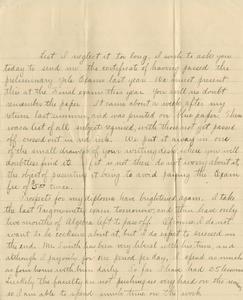 Lest I neglect it too long, I wish to ask you
today to send me the certificate of having passed the
preliminary Exams last year. We must present
this at the final exams this year. You will no doubt
remember the paper. It came about a week after my
return last summer, and was printed on blue paper. There
was a list of all subjects required, with those not yet passed
off crossed out in red ink. We put it away in one
of the small drawers of your writing desk where you will
doubtless find it. If it is not there do not worry about it,
the object of presenting it being to avoid paying the Exam
fee of $5.00 twice.
Prospects for my diploma have brightened again. I take
the last Trigonometry exam tomorrow and then have only
two months of Algebra left to pass off. Of course I do not
want to be cocksure about it, but I do expect to succeed in
the end. Mr. Smith has been very liberal with his time, and
although I pay only for one period per day, I spend as much
as four hours with him daily. So far I have had 25 lessons
Luckily the faculty are not pushing us very hard on the
so I am able to spend ample time on the work.